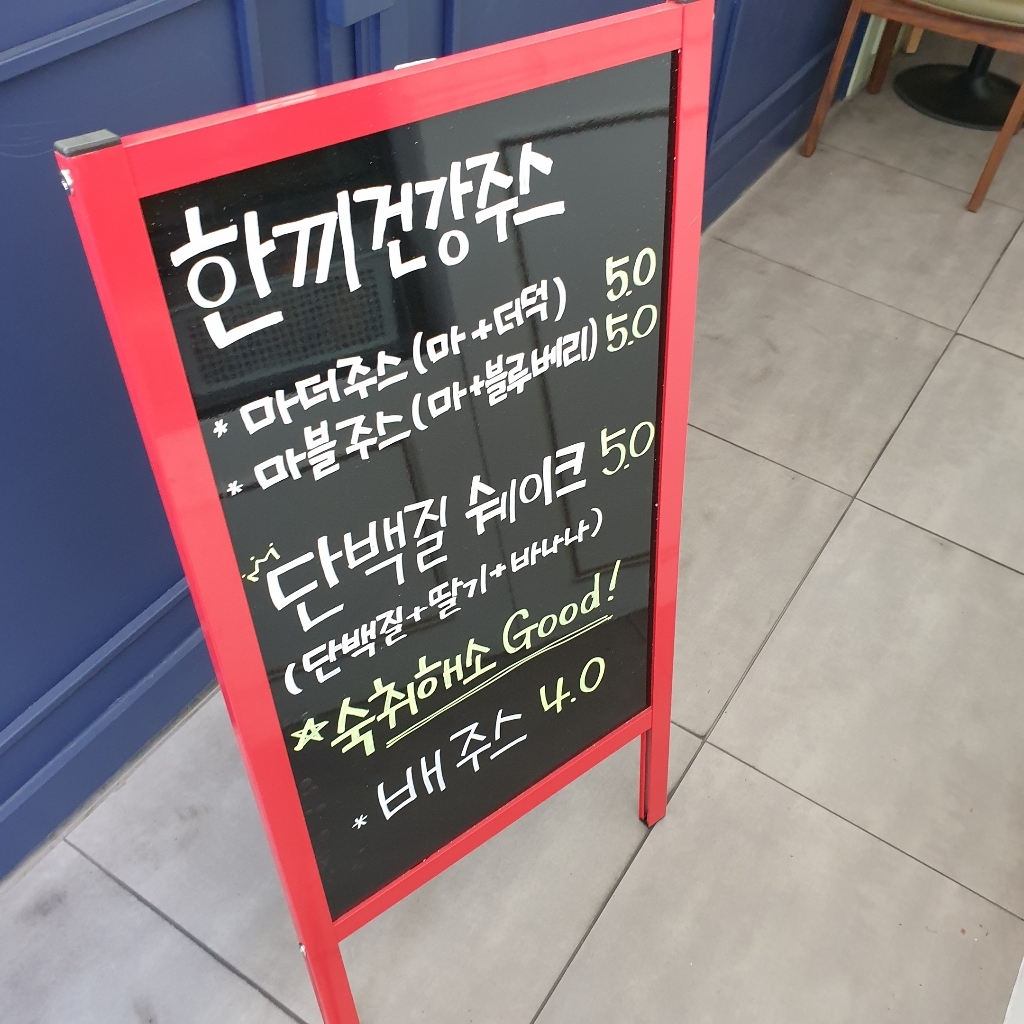 한끼건강주스
* 마더주스 (마+더덕) 5.0
* 마블주스 (마+블루베리) 5.0
단백질 쉐이크 5.0
(단백질+딸기+바나나)
☆숙취해소 Good!
* 배주스 4.0